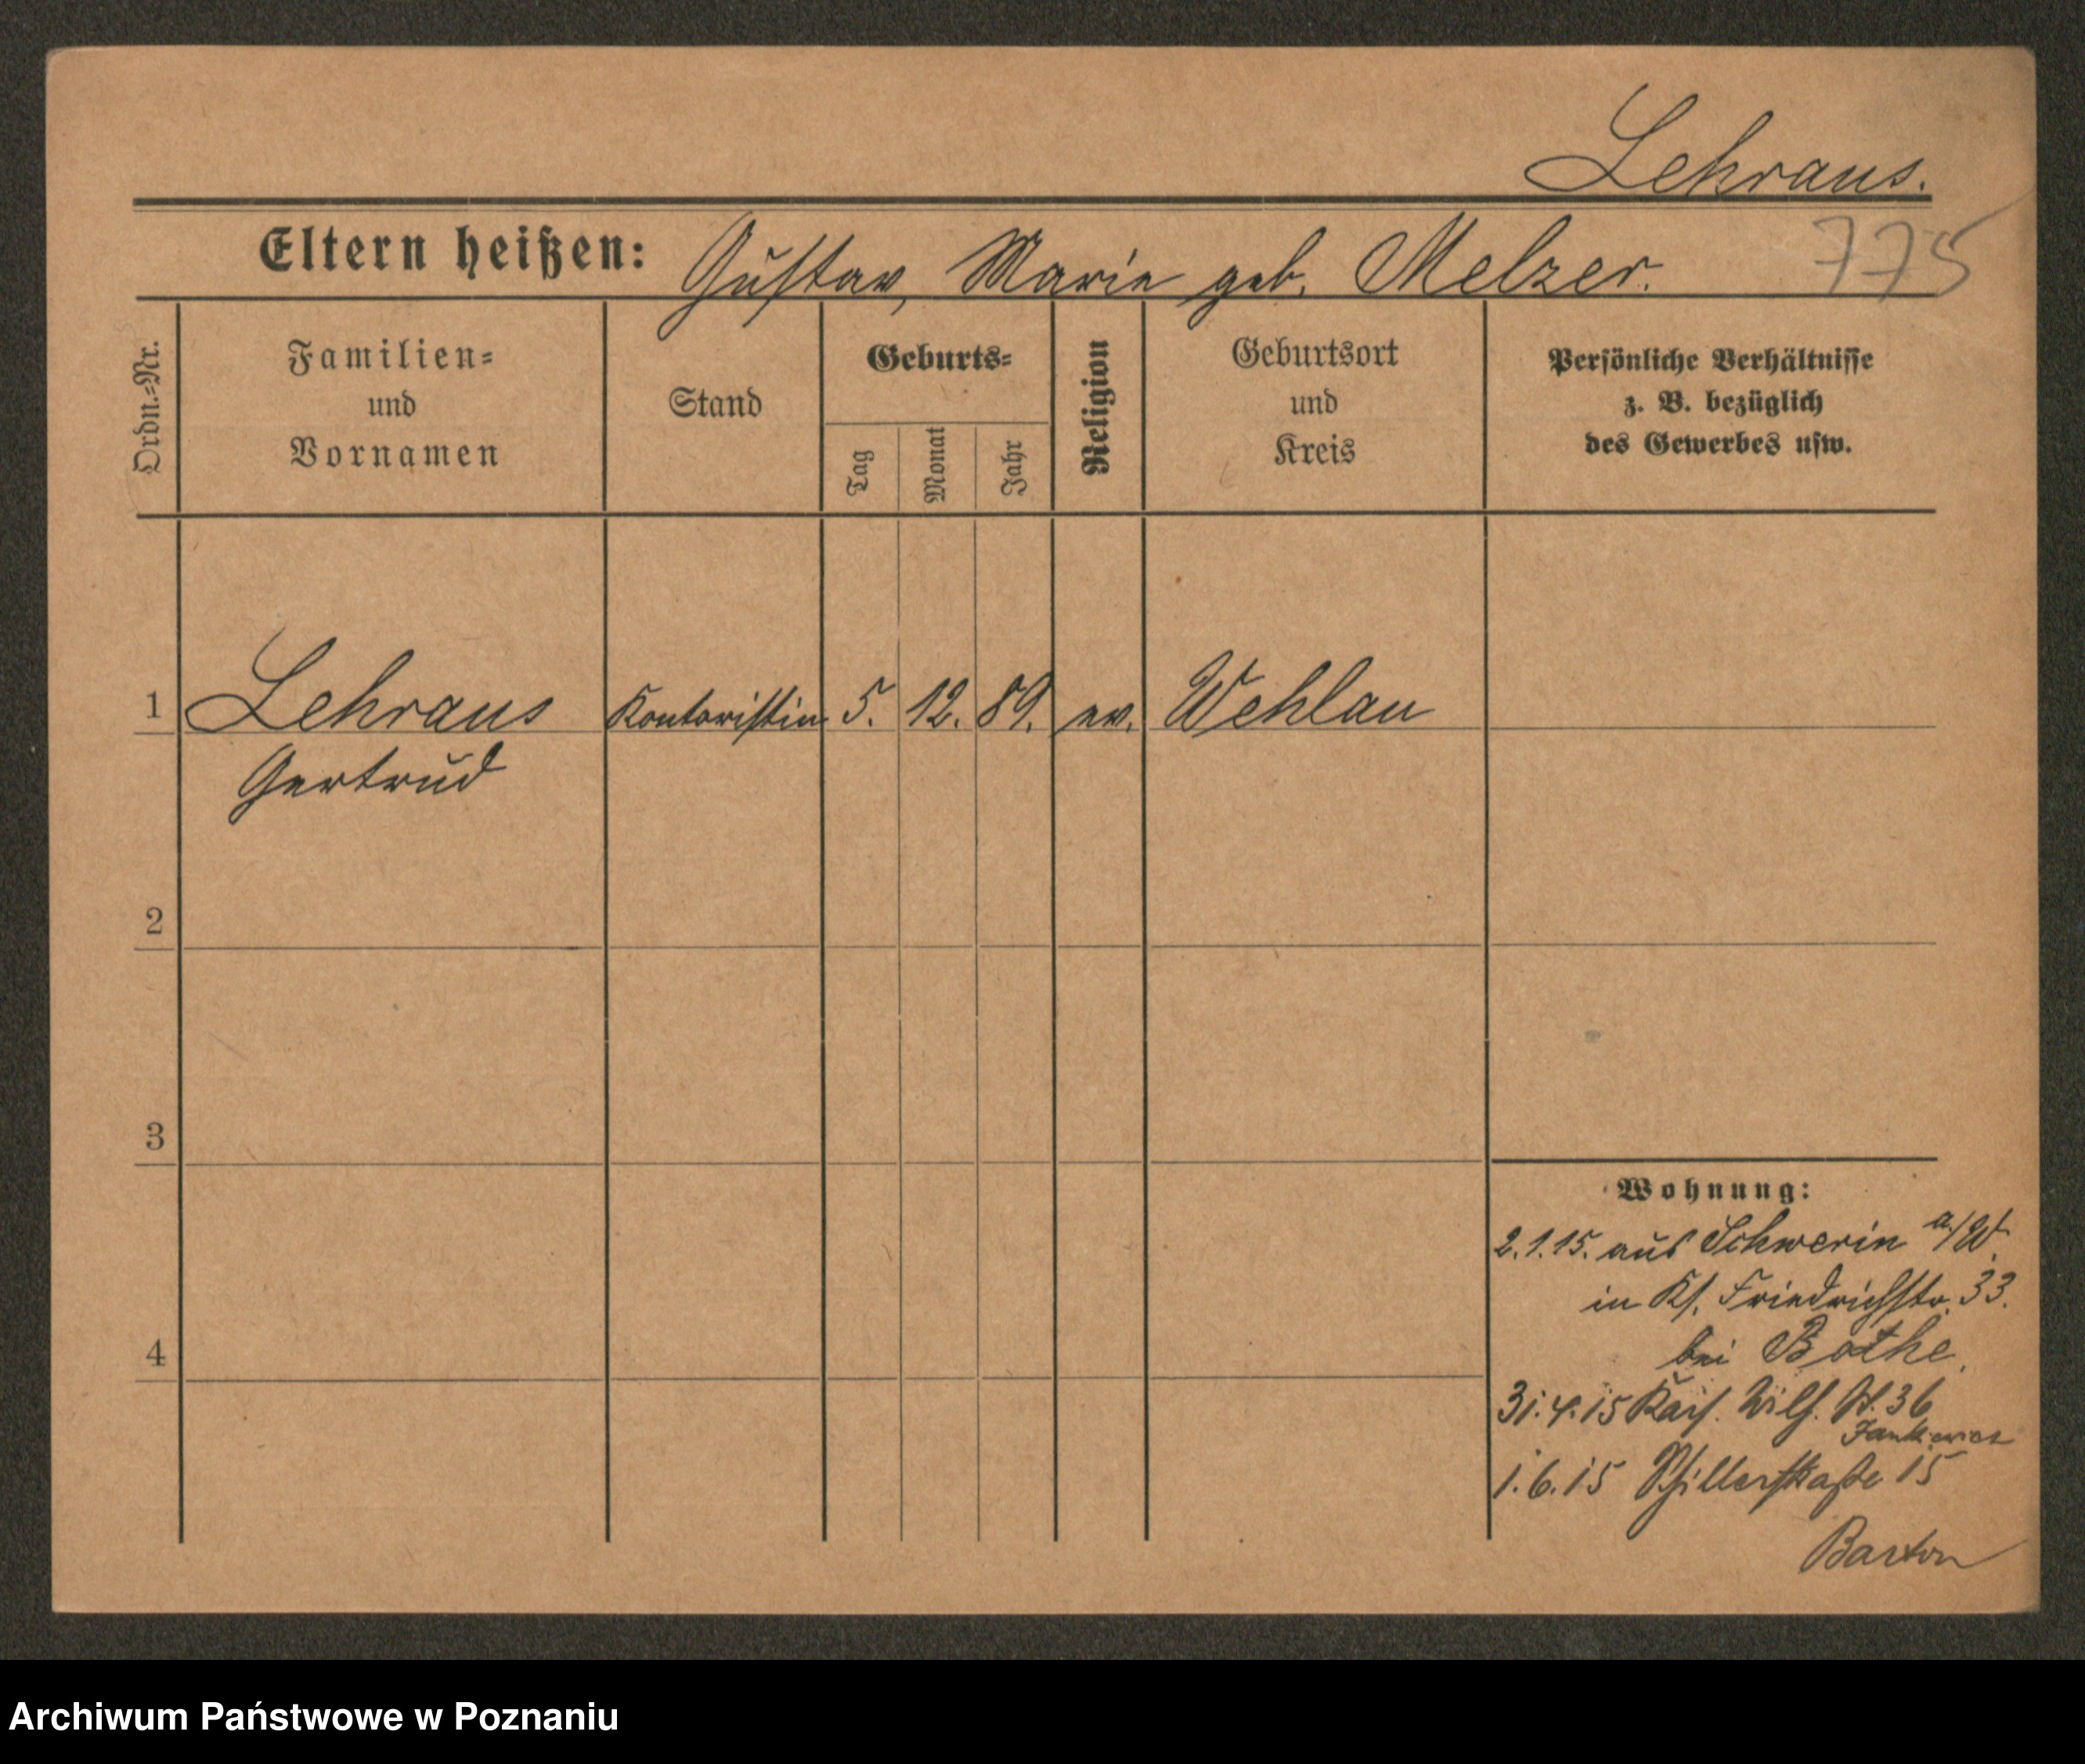 Lehraus.
775
Eltern heißen: Gustav, Marie geb. Melzer.
Ordn.=Nr.
Familien=
und
Vornamen
Stand
Geburts=
Tag
Monat
Jahr
Religion
Geburtsort
und
Kreis
Persönliche Verhältnisse
z. B. bezüglich
des Gewerbes usw.
1 Lehraus Kontoristin 5. 12. 89. ev. Wehlau
Gertrud
2
3
4
Wohnung:
2.1.15. aus Schwerin a/W.
in Kf. Friedrichstr. 33.
bei Bothe.
31.4.15 Kais. Wilh. St. 36
Jankiewicz
1.6.15 Schillerstraße 15
Barton
Archiwum Państwowe w Poznaniu